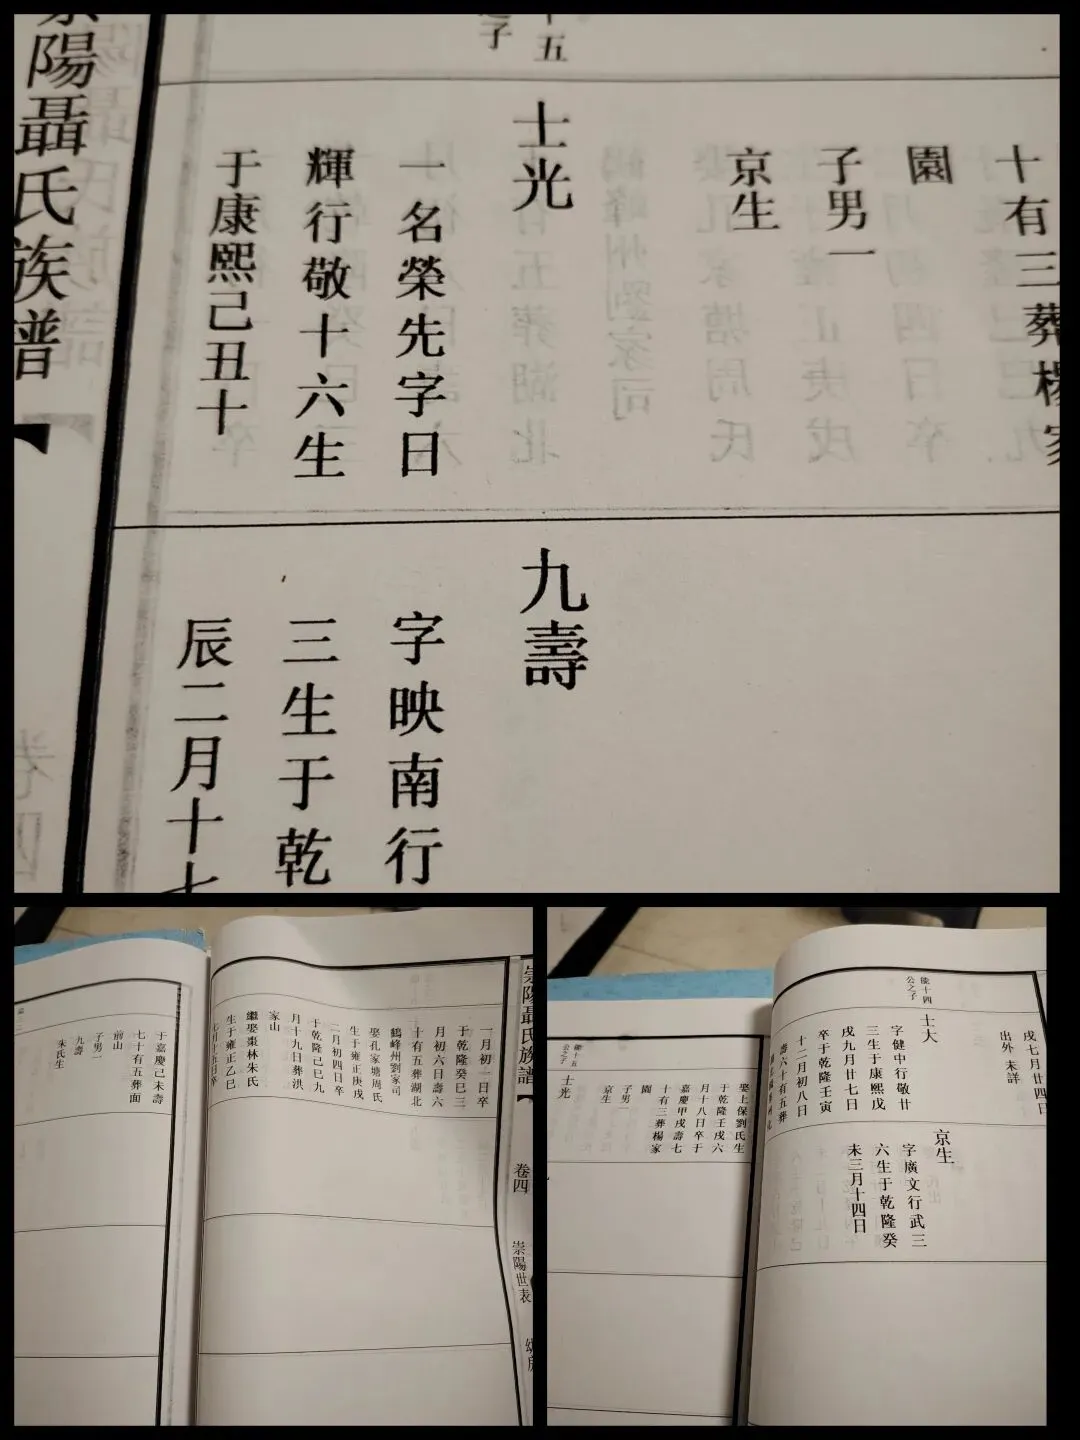 陽聶氏族譜
十有三葬楊家
園
子男一
京生
十五
之子
士光
一名榮先字日
輝行敬十六生
于康熙己丑十
九壽
字映南行
三生于乾
辰二月十七
崇陽聶氏族譜
卷四
崇陽世表
一月初一日卒
于乾隆癸巳三
月初六日壽六
十有五葬湖北
鶴峰州劉家司
娶孔家塘周氏
生于雍正庚戌
二月初四日卒
于乾隆己巳九
月十九日葬洪
家山
繼娶棗林朱氏
生于雍正乙巳
于嘉慶己未壽
七十有五葬面
前山
子男一
九壽
朱氏生
戌七月廿四日
出外未詳
能十四
公之子
士大
字健中行敬廿
三生于康熙戊
戌九月廿七日
卒于乾隆壬寅
十二月初八日
壽六十有五葬
京生
字廣文行武三
六生于乾隆癸
未三月十四日
娶上保劉氏生
于乾隆壬戌六
月十八日卒于
嘉慶甲戌壽七
十有三葬楊家
園
子男一
京生
能十五
公之子
士光